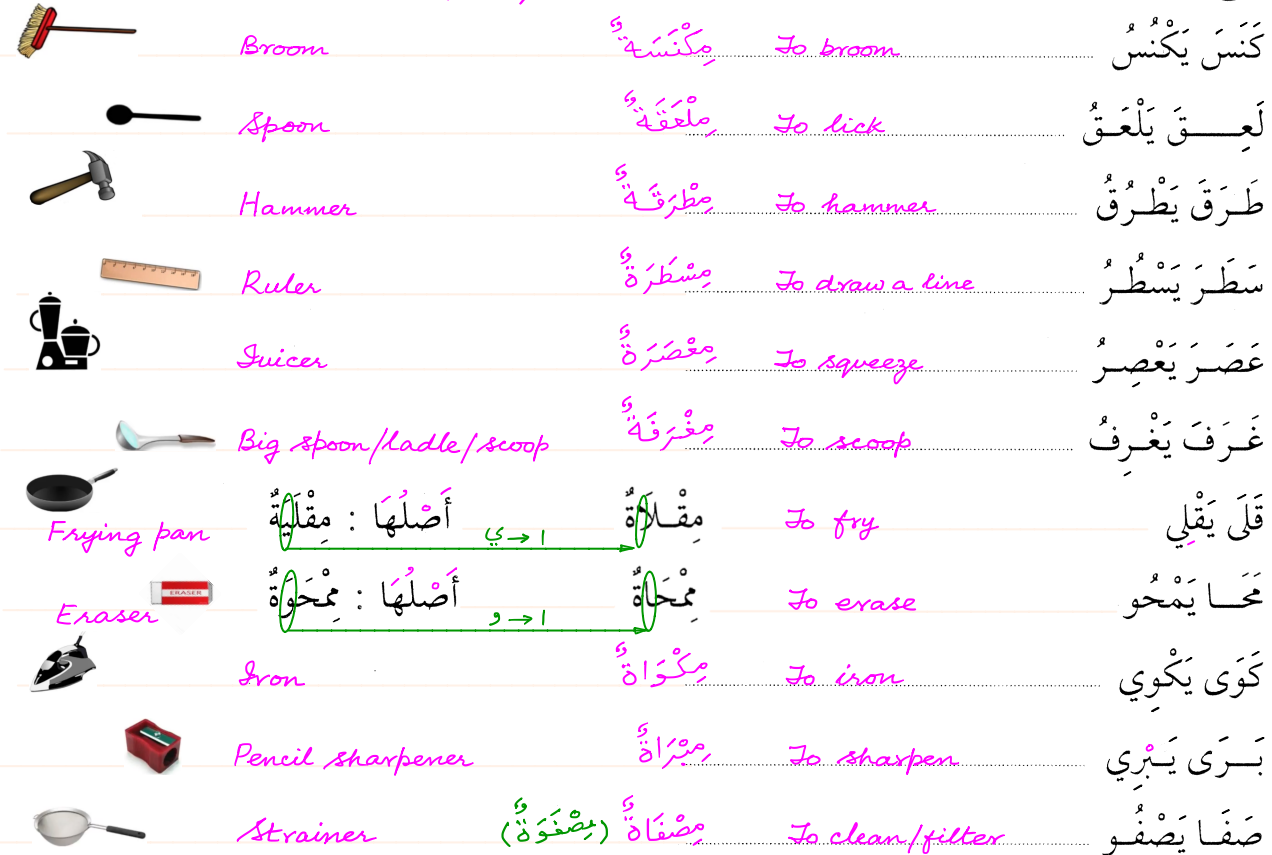 كَنَسَ يَكْنُسُ To broom مِكْنَسَةٌ Broom
لَعِـــــقَ يَلْعَـقُ To lick مِلْعَقَةٌ Spoon
طَـرَقَ يَطْـرُقُ To hammer مِطْرَقَـةٌ Hammer
سَطَـرَ يَسْطُـرُ To draw a line مِسْطَرَةٌ Ruler
عَصَـرَ يَعْصِـرُ To squeeze مِعْصَرَةٌ Juicer
غَـرَفَ يَغْـرِفُ To scoop مِغْرَفَةٌ Big spoon/ladle/scoop
قَلَى يَقْلِي To fry مِقْـلَاةٌ أَصْلُهَا : مِقْلَيَةٌ Frying pan
ي → ا
مَحَـــا يَمْحُو To erase مِمْحَاةٌ أَصْلُهَا : مِمْحَوَةٌ Eraser
ERASER
و → ا
كَوَى يَكْوِي To iron مِكْوَاةٌ Iron
بَـــرَى يَـبْرِي To sharpen مِبْرَاةٌ Pencil sharpener
صَفَـا يَصْفُـو To clean/filter مِصْفَاةٌ (مِصْفَوَةٌ) Strainer